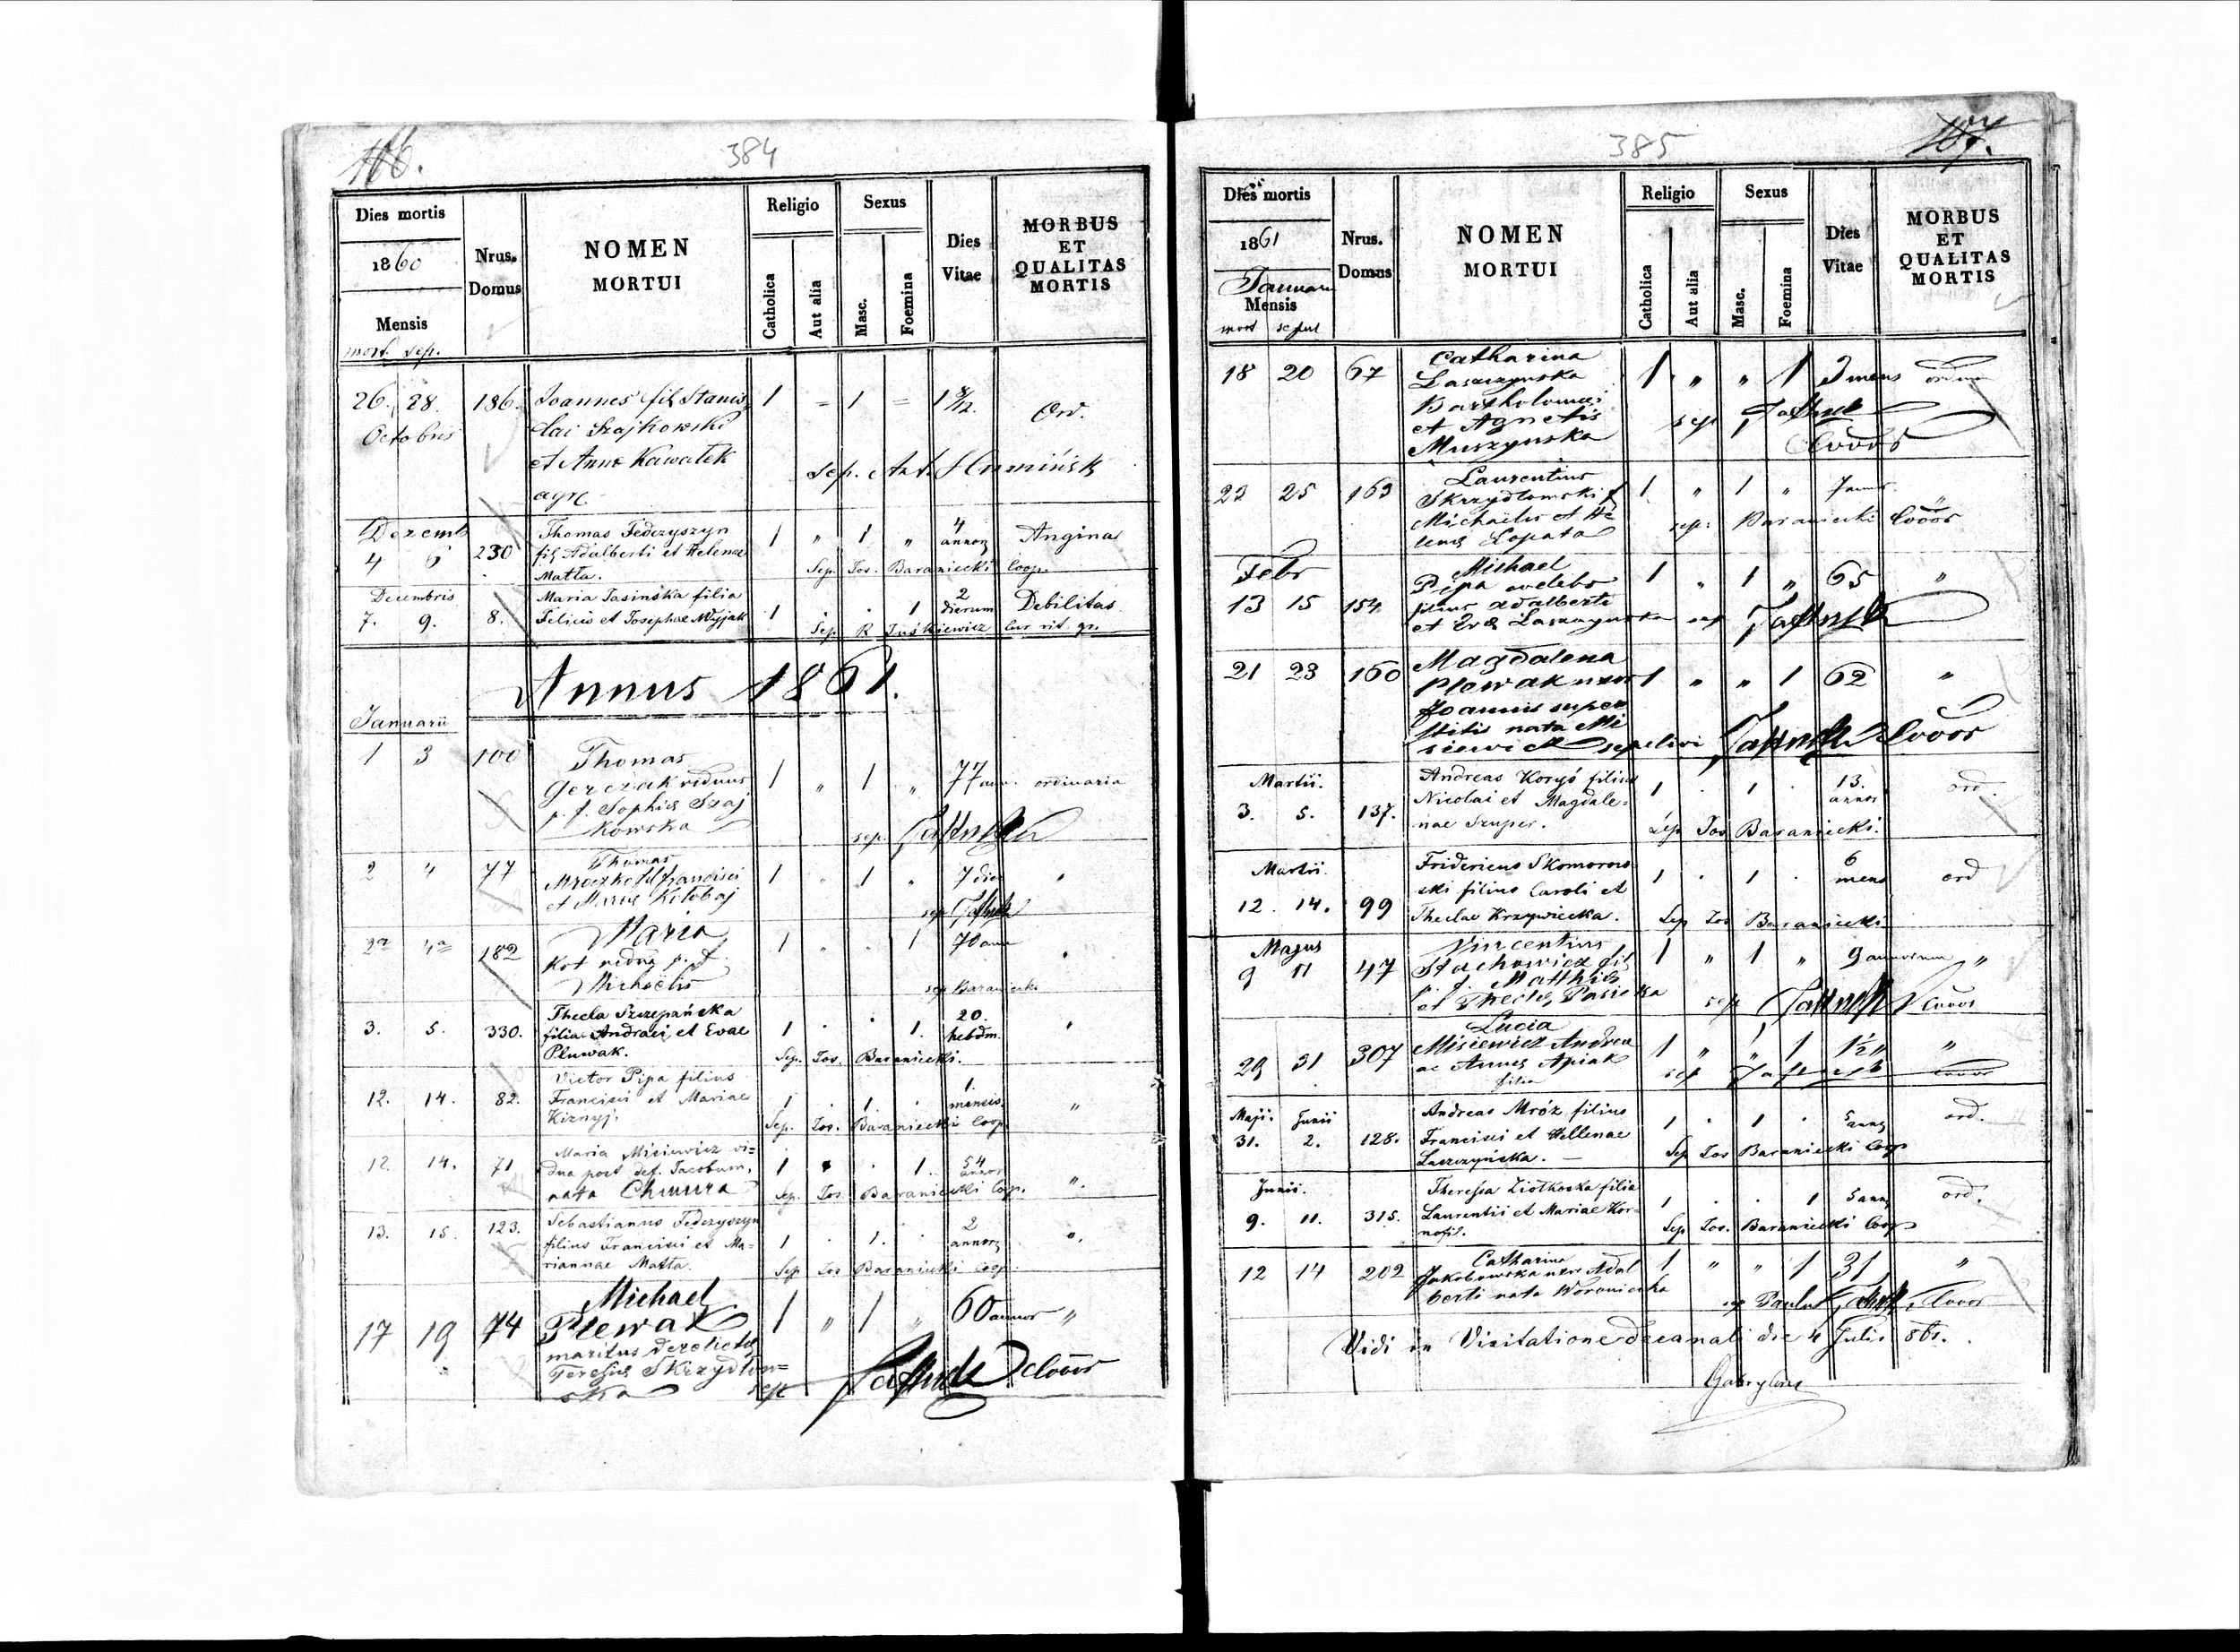 384
Dies mortis
1860
Mensis
mort. sep.
Nrus. Domus
NOMEN
MORTUI
Religio
Catholica
Aut alia
Sexus
Masc.
Foemina
Dies
Vitae
MORBUS
ET
QUALITAS
MORTIS
26. 28. 186. Joannes fil Stanis 1 = 1 = 1 8/12. Ord.
Octobris lai Szajkowski
et Anna Kawałek Sep. Ant.
agr
Dezemb Thomas Fedczyszyn 4
4 6 230 fil Adalberti et Helenae 1 " 1 " annor Angina
Matła. Sep. Jos. Baraniecki Coop.
Decembris Maria Jasińska filia 2
7. 9. 8. Felicis et Josephae Myjak 1 . . 1 dierum Debilitas
Sep. R Juśkiewicz Cur rit. gr.
Annus 1861.
Januarii
1 3 100 Thomas
Gerczak viduus 1 " 1 " 77 ann. ordinaria
p. f. Sophia Szaj
kowska sep.
2 4 77 Thomas
Mroczko fil Francisci 1 . 1 " 7 die
et Maria Kitobaj sep
2a 4a 182 Maria 1 . . 1 70 ann
Kot vidua p. f.
Michaelis sep Baraniecki
3. 5. 330. Thecla Szczepańska 20.
filia Andreai et Evae 1 . . 1. hebdm.
Pluwak. Sep. Jos. Baraniecki.
12. 14. 82. Victor Pipa filius 1.
Francisci et Mariae 1 . 1. . mensis. "
Kiznyj. Sep. Jos. Baraniecki Coop.
12. 14. 71 Maria Misiewicz vi= 54
dua post def. Jacobum, 1 . . 1. annor ".
nata Chmura Sep. Jos. Baraniecki Coop.
13. 15. 123. Sebastianus Fedczyszyn 2
filius Francisci et Ma= 1 . 1. . annorz ".
riannae Matła. Sep Jos Baraniecki Coop.
17 19 74 Michael 1 " 1 " 60 annor "
Plewak
maritus derelicta
Teresia Skrzydłow=
ska sep
385
107.
Dies mortis
1861
Januarii
Mensis
mort sepul
Nrus.
Domus
NOMEN
MORTUI
Religio
Catholica
Aut alia
Sexus
Masc.
Foemina
Dies
Vitae
MORBUS
ET
QUALITAS
MORTIS
18 20 67 Catharina 1 " " 1 3 mens
Laszczynska
Bartholomaei
et Agnetis sep
Muszynska
23 25 163 Laurentius
Skrzydłowski f 1 " 1 " 7 "
Michaelis et He
lena Łopata sep: Baraniecki
Febr Michael 1 " 1 " 65 "
13 15 154 Pipa
filius Adalberti
et Eva Laszczynska sep
21 23 160 Magdalena
Plewak uxor 1 " " 1 62 "
Joannis super
stitis nata Mi
siewicz sepelivi
Martii. Andreas Koryś filius 13.
3. 5. 137. Nicolai et Magdale= 1 . 1 . annor ord.
nae Szuper. Sep Jos Baraniecki.
Martii. Fridericus Skomorow 6
12. 14. 99 ski filius Caroli et 1 . 1 . mens ord
Theclae Krzywiecka. Sep Jos Baraniecki
Majus Vincentius
9 11 47 Stachowicz fil 1 " 1 " 9 annorum "
p. f. Matthia
et Thecla Pasieka sep
29 31 307 Lucia
Misiewicz Andrea 1 " " 1 1½ " "
ac Anna Apiak
filia sep
Maji. Junii Andreas Mróz filius 5
31. 2. 128. Francisci et Hellenae 1 . 1 . ann ord.
Laszczyńska. Sep Jos Baraniecki Coop
Junii. Theressa Ziołkoska filia
9. 11. 315. Laurentii et Mariae Kor= 1 . . 1 5 ann ord.
nofil. Sep Jos. Baraniecki Coop
12 14 202 Catharina 1 " " 1 31 "
Jakobowska uxor Adal
berti nata Woroniecka sep Paulus
Vidi in Visitatione decanali die 4 Julii 861.